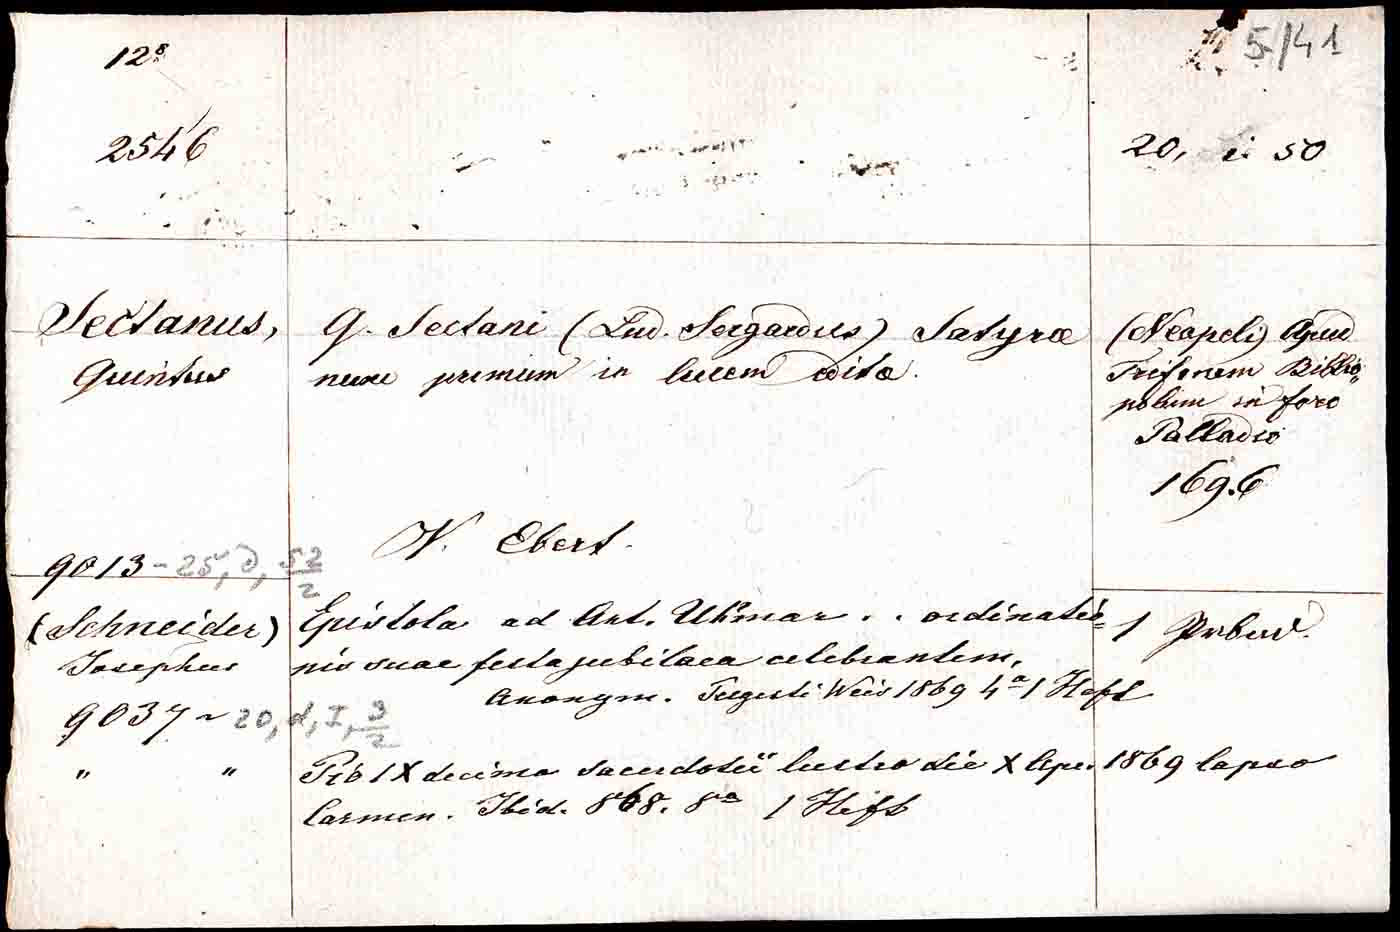 12°
5/41
2546
20, ii 50
Sectanus,
Quintus
Q. Sectani (Lud. Sergardus) Satyrae
nunc primum in lucem editae.
(Neapoli) Apud
Trifonem Biblio„
polam in foro
Palladio
1696
V. Ebert.
9013 - 25, d, 52/2
(Schneider)
Josephus
Epistola ad Ant. Uhmar . . ordinatio=
nis suae festa jubilaea celebrantem,
Anonym. Tergesti Weis 1869 4° 1 Heft
1 Prbnd.
9037 ~ 20, d, I, 3/2
" "
Pro IX decimo sacerdotii lustro die X Apr. 1869 lapso
Carmen. Ibid. 868. 8° 1 Heft